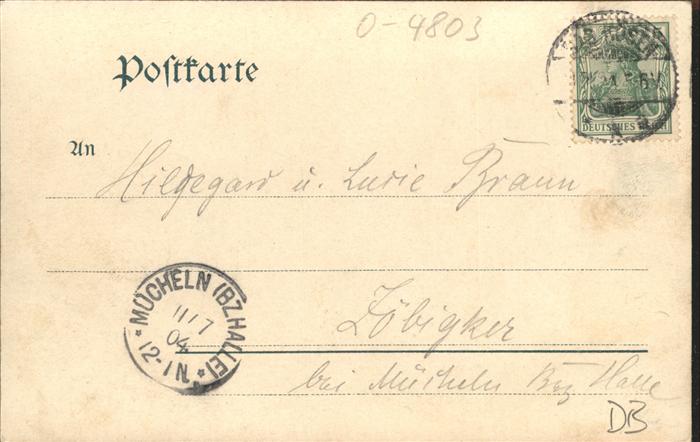 O-4803
Postkarte
DEUTSCHES REICH
An
Hildegard u. Lucie Braun
MÜCHELN (BZ HALLE)
11/7
04
12-1 N.
Zöbigker
bei Mücheln Bez Halle
DB